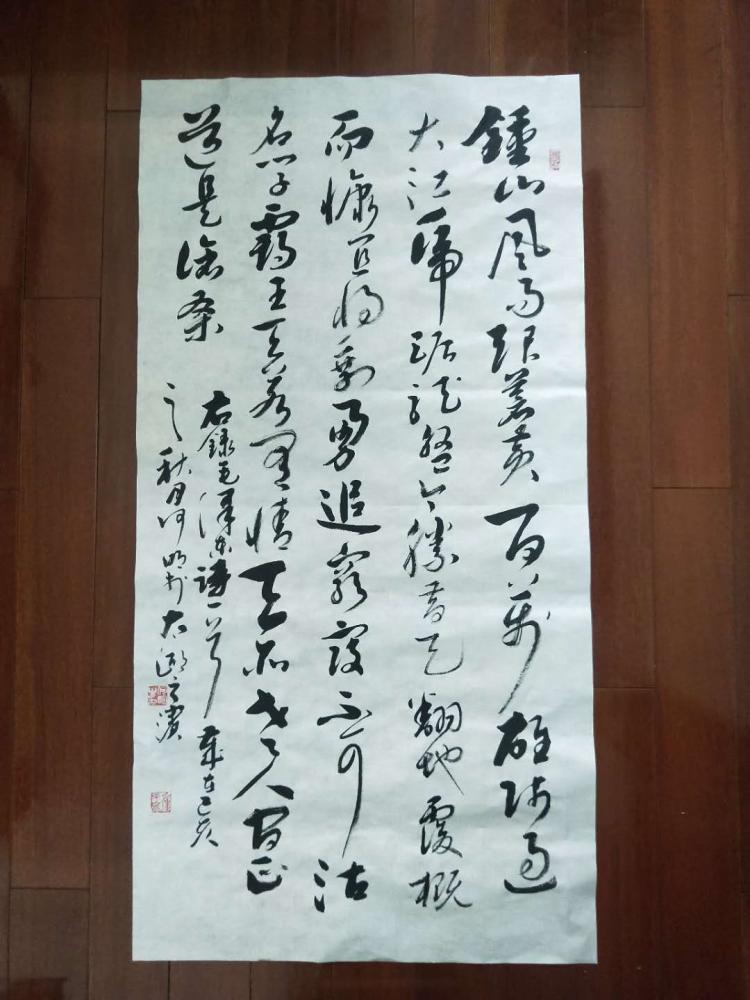 鍾山風雨起蒼黃百萬雄師過
大江虎踞龍盤今勝昔天翻地覆概
而慷宜將剩勇追窮寇不可沽
名學霸王天若有情天亦老人間正
道是滄桑
右錄毛澤東詩一首歲在己亥
之秋月何明於太湖之濱